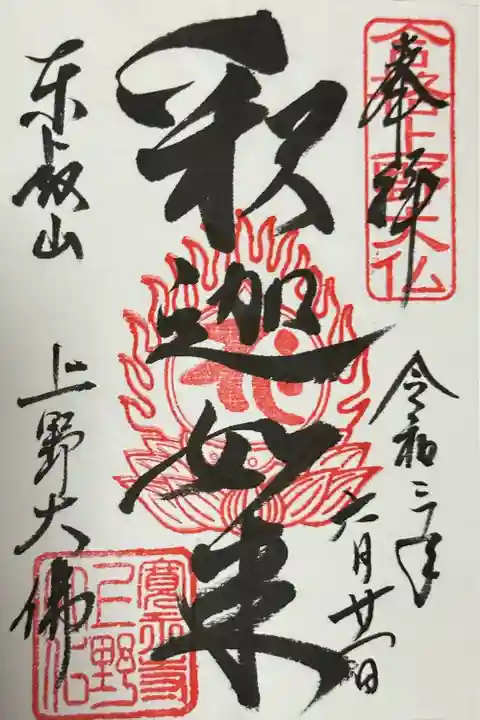 奉拝
令和三年
六月廿一日
釈迦如来
東叡山
上野大佛
上野大仏
寛永寺
上野
大仏